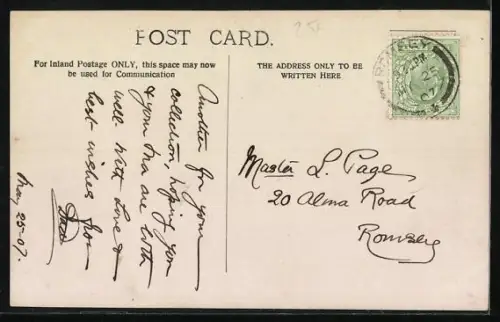 POST CARD.
For Inland Postage ONLY, this space may now
be used for Communication
THE ADDRESS ONLY TO BE
WRITTEN HERE
Another for your
collection, hoping you
& your Ma are both
well. With love &
best wishes from
May 25-07.
Master L. Page
20 Alma Road
Romsey
ROMSEY
PM
25
07